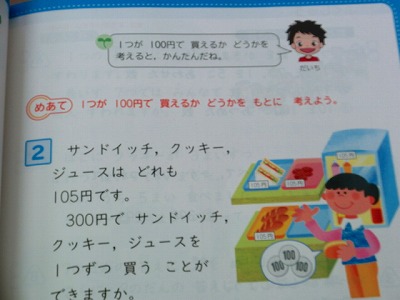 1つが 100円で 買えるか どうかを
考えると，かんたんだね。
だいち
めあて 1つが 100円で 買えるか どうかを もとに 考えよう。
2 サンドイッチ，クッキー，
ジュースは どれも
105円です。
300円で サンドイッチ，
クッキー，ジュースを
1つずつ 買う ことが
できますか。
105円
105円
105円
105円
100
100
100